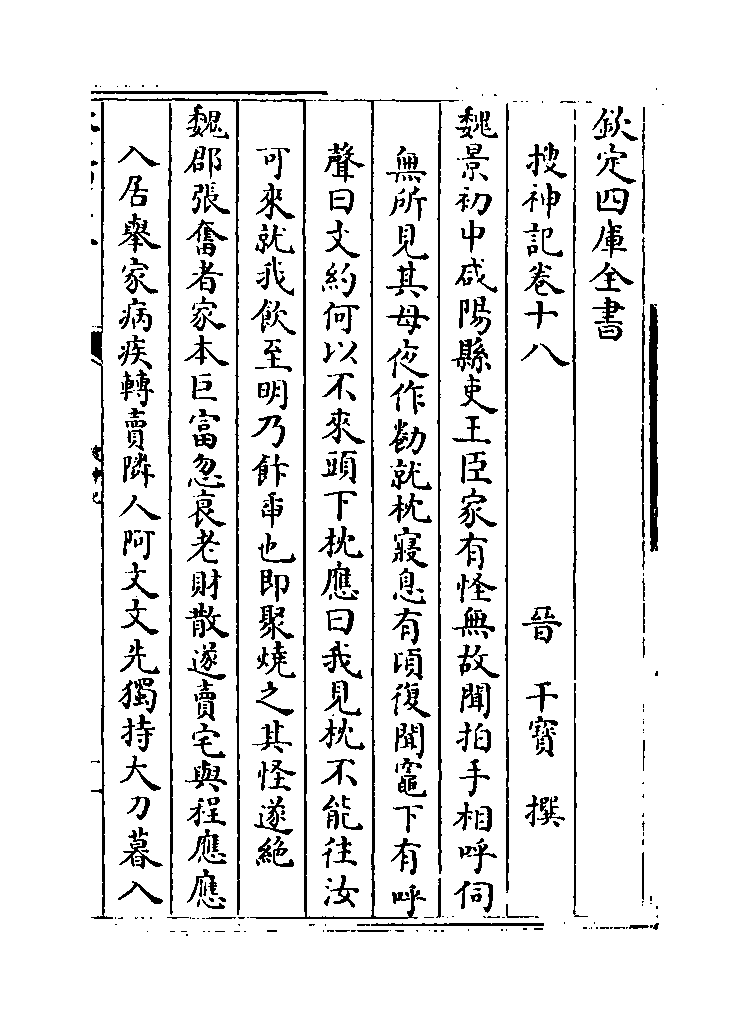 欽定四庫全書
搜神記卷十八
晉 干寶 撰
魏景初中咸陽縣吏王臣家有怪無故聞拍手相呼伺
無所見其母夜作勌就枕寢息有頃復聞竈下有呼
聲曰文約何以不來頭下枕應曰我見枕不能往汝
可來就我飲至明乃飯臿也即聚燒之其怪遂絶
魏郡張奮者家本巨富忽衰老財散遂賣宅與程應應
入居舉家病疾轉賣隣人阿文文先獨持大刀暮入